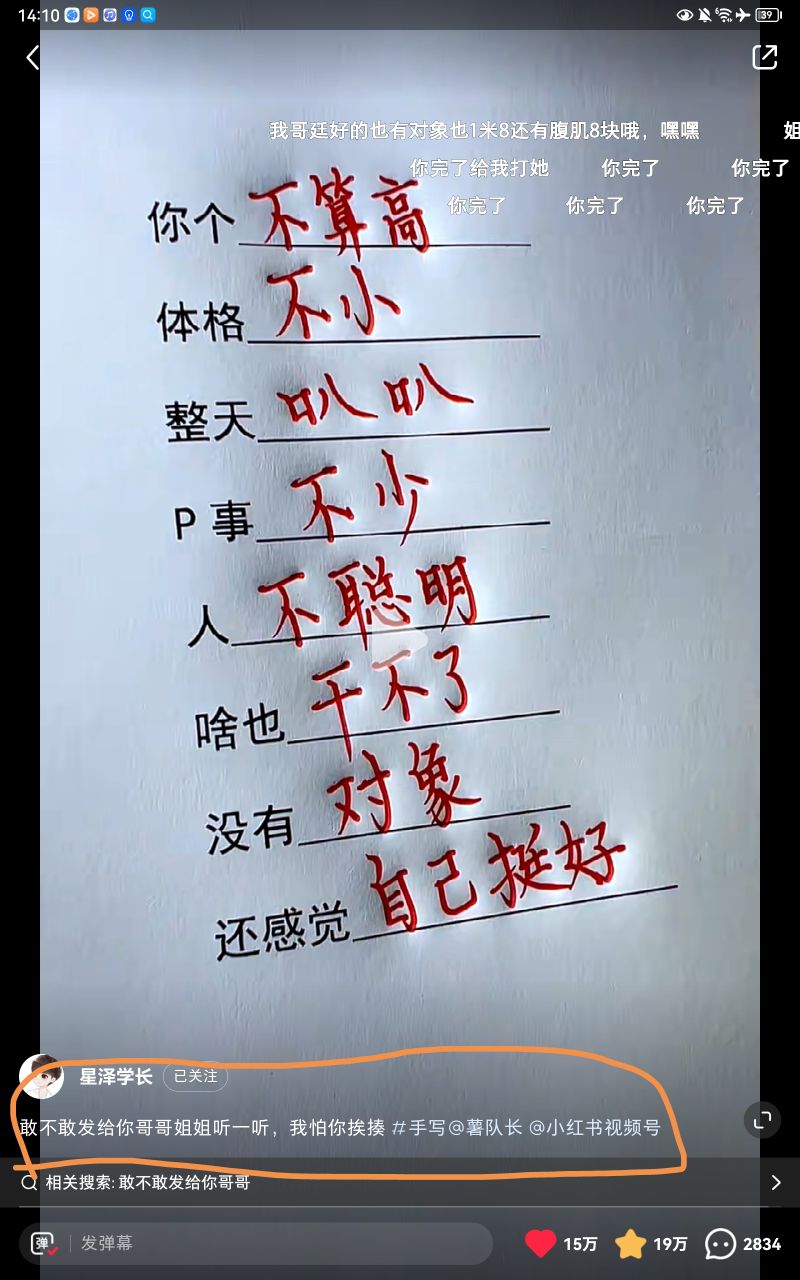 14:10
39
我哥廷好的也有对象也1米8还有腹肌8块哦，嘿嘿 姐
你完了给我打她 你完了 你完了
你完了 你完了 你完了
你个不算高
体格不小
整天叭叭
P事不少
人不聪明
啥也干不了
没有对象
还感觉自己挺好
星泽学长 已关注
敢不敢发给你哥哥姐姐听一听，我怕你挨揍 #手写@薯队长 @小红书视频号
相关搜索: 敢不敢发给你哥哥
弹 发弹幕 15万 19万 2834